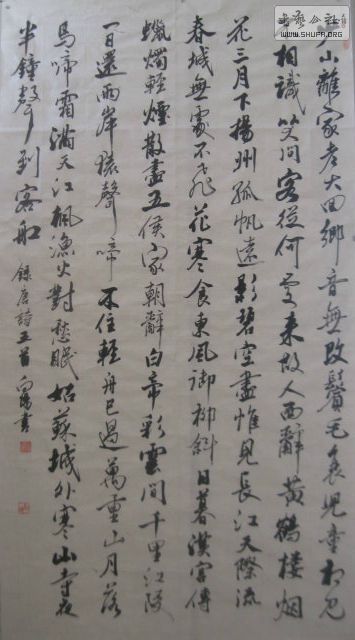 少小離家老大回鄉音無改鬢毛衰兒童相見
相識笑問客從何處來故人西辭黃鶴樓烟
花三月下揚州孤帆遠影碧空盡惟見長江天際流
春城無處不飛花寒食東風御柳斜日暮漢宮傳
蠟燭輕煙散盡五侯家朝辭白帝彩雲間千里江陵
一日還兩岸猿聲啼不住輕舟已過萬重山月落
烏啼霜滿天江楓漁火對愁眠姑蘇城外寒山寺夜
半鐘聲到客船 錄唐詩五首 書
书艺公社
WWW.SHUFA.ORG